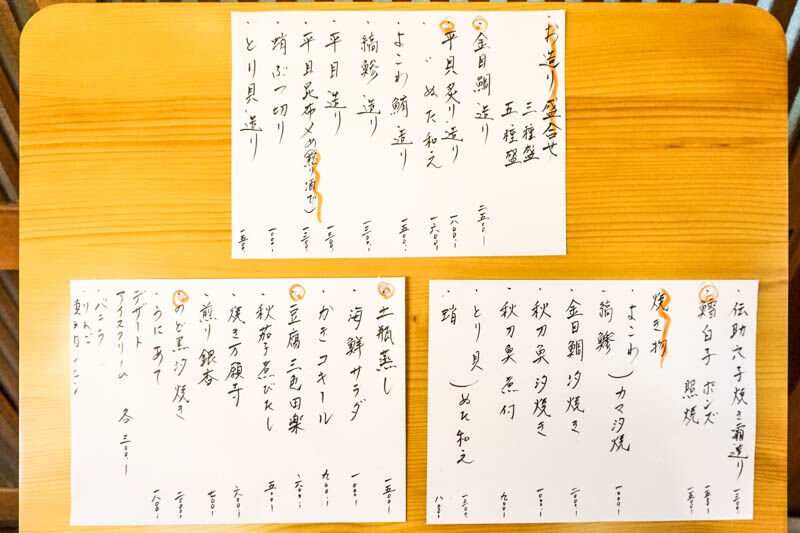 お造り盛合せ
三種盛
五種盛
・金目鯛造り 二五〇〇
・平貝炙り造り 一八〇〇
・〃 ぬた和え 一六〇〇
・よこわ鮪造り 一五〇〇
・縞鯵造り 一三〇〇
・平目造り 一三〇〇
・平目昆布〆め(煎り酒で) 一三〇〇
・蛸ぶつ切り 一〇〇〇
・とり貝造り 一五〇〇
伝助穴子焼き霜造り 一三〇〇
・鱈白子 ポンズ 一五〇〇
照焼 一五〇〇
焼き物
・よこわ
縞鯵 ) カマ汐焼 一〇〇〇
・金目鯛汐焼き 二〇〇〇
・秋刀魚汐焼き 一〇〇〇
・秋刀魚煮付 九〇〇
・とり貝 一三〇〇
・蛸 ) ぬた和え 八〇〇
・土瓶蒸し 一五〇〇
・海鮮サラダ 一〇〇〇
・かきコキール 九〇〇
・豆腐三色田楽 六〇〇
・秋茄子煮びたし 五〇〇
・焼き万願寺 六〇〇
・煎り銀杏 七〇〇
・のど黒汐焼き 二〇〇〇
・うにあて 一八〇〇
デザート
アイスクリーム 各三〇〇
・バニラ
・りんご